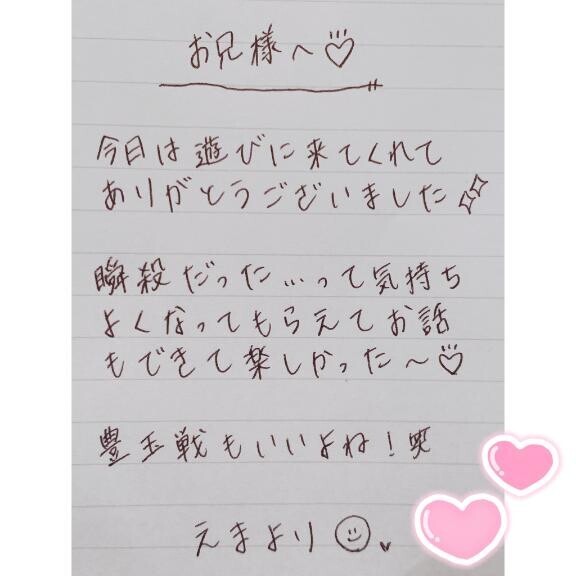 お兄様へ♡
今日は遊びに来てくれて
ありがとうございました
瞬殺だった…って気持ち
よくなってもらえてお話
もできて楽しかった〜♡
豊玉戦もいいよね！笑
えまより